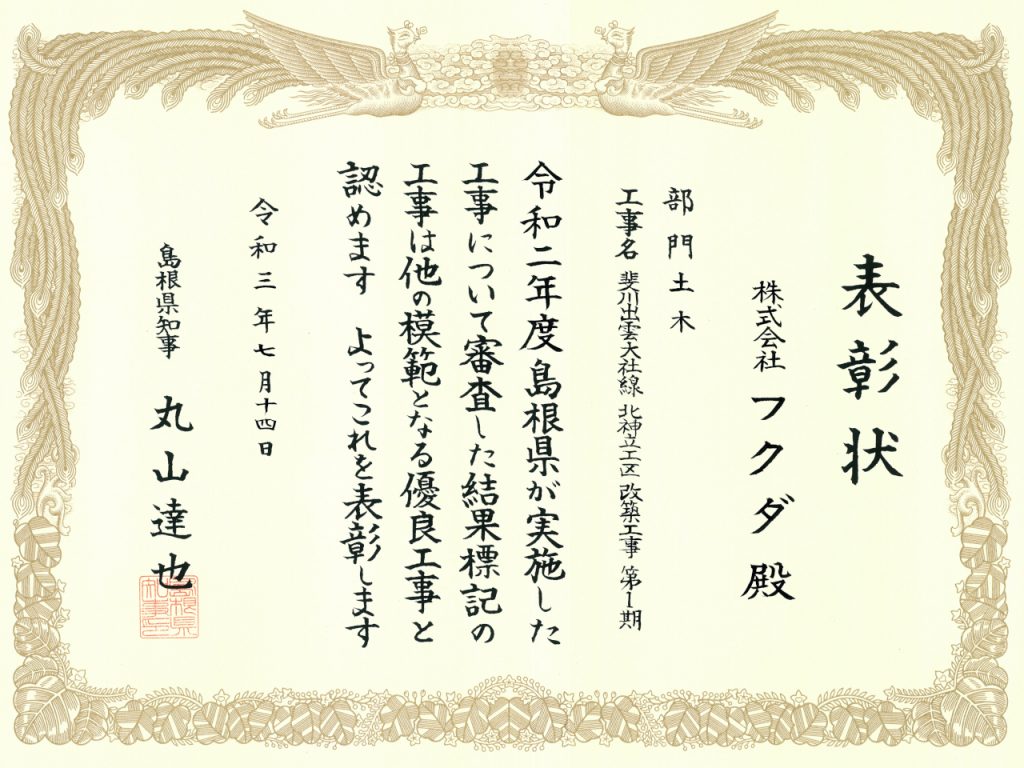 表彰状
株式会社 フクダ 殿
部門 土木
工事名 斐川出雲大社線 北神立工区 改築工事 第1期
令和二年度島根県が実施した
工事について審査した結果標記の
工事は他の模範となる優良工事と
認めます よってこれを表彰します
令和三年七月十四日
島根県知事 丸山達也
島根県知事之印